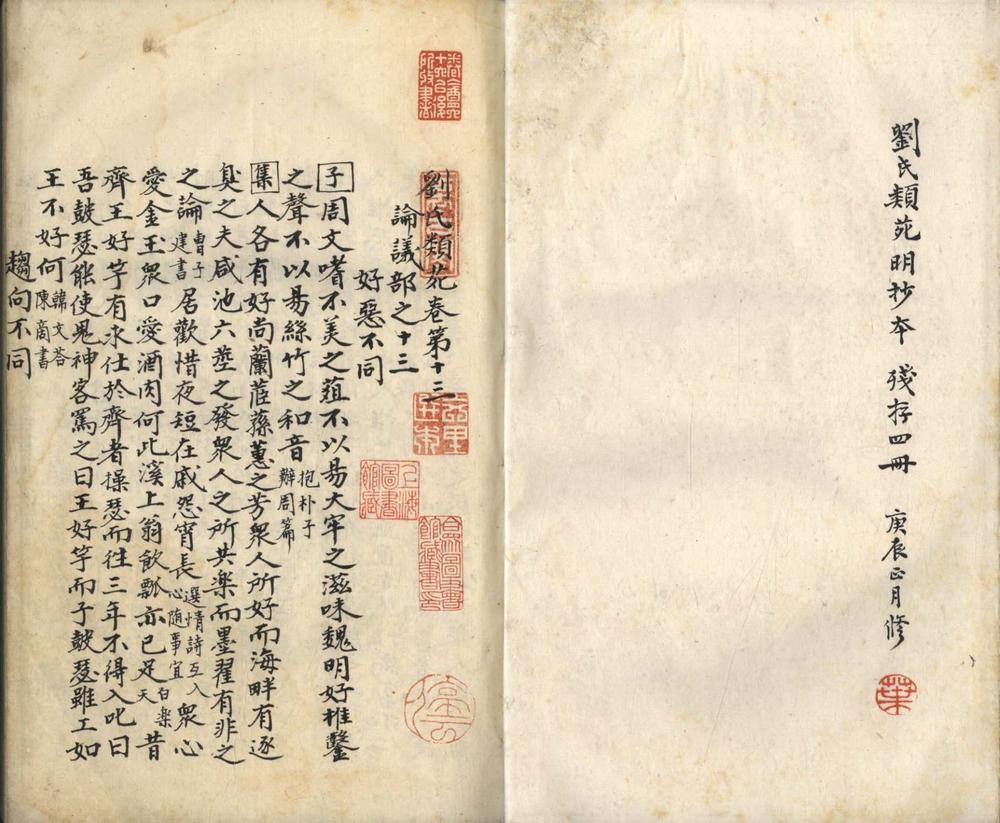 劉氏類苑明抄夲 殘存四冊 庚辰正月修
葉
劉氏類苑卷第十三
論議部之十三
好惡不同
子周文嗜不美之葅不以易大牢之滋味魏明好椎鑿
之聲不以易絲竹之和音抱朴子辯周篇
集人各有好尚蘭茝蓀蕙之芳衆人所好而海畔有逐
臭之夫咸池六莖之發衆人之所共楽而墨翟有非之
之論曹子建書居歡惜夜短在戚怨宵長選情詩互入心随事宜衆心
愛金玉衆口愛酒肉何此溪上翁飲瓢亦已足白楽天昔
齊王好竽有求仕於齊者操瑟而往三年不得入叱曰
吾鼓瑟能使鬼神客罵之曰王好竽而子鼓瑟雖工如
王不好何韓文荅陳商書
趨向不同
上海圖書館藏